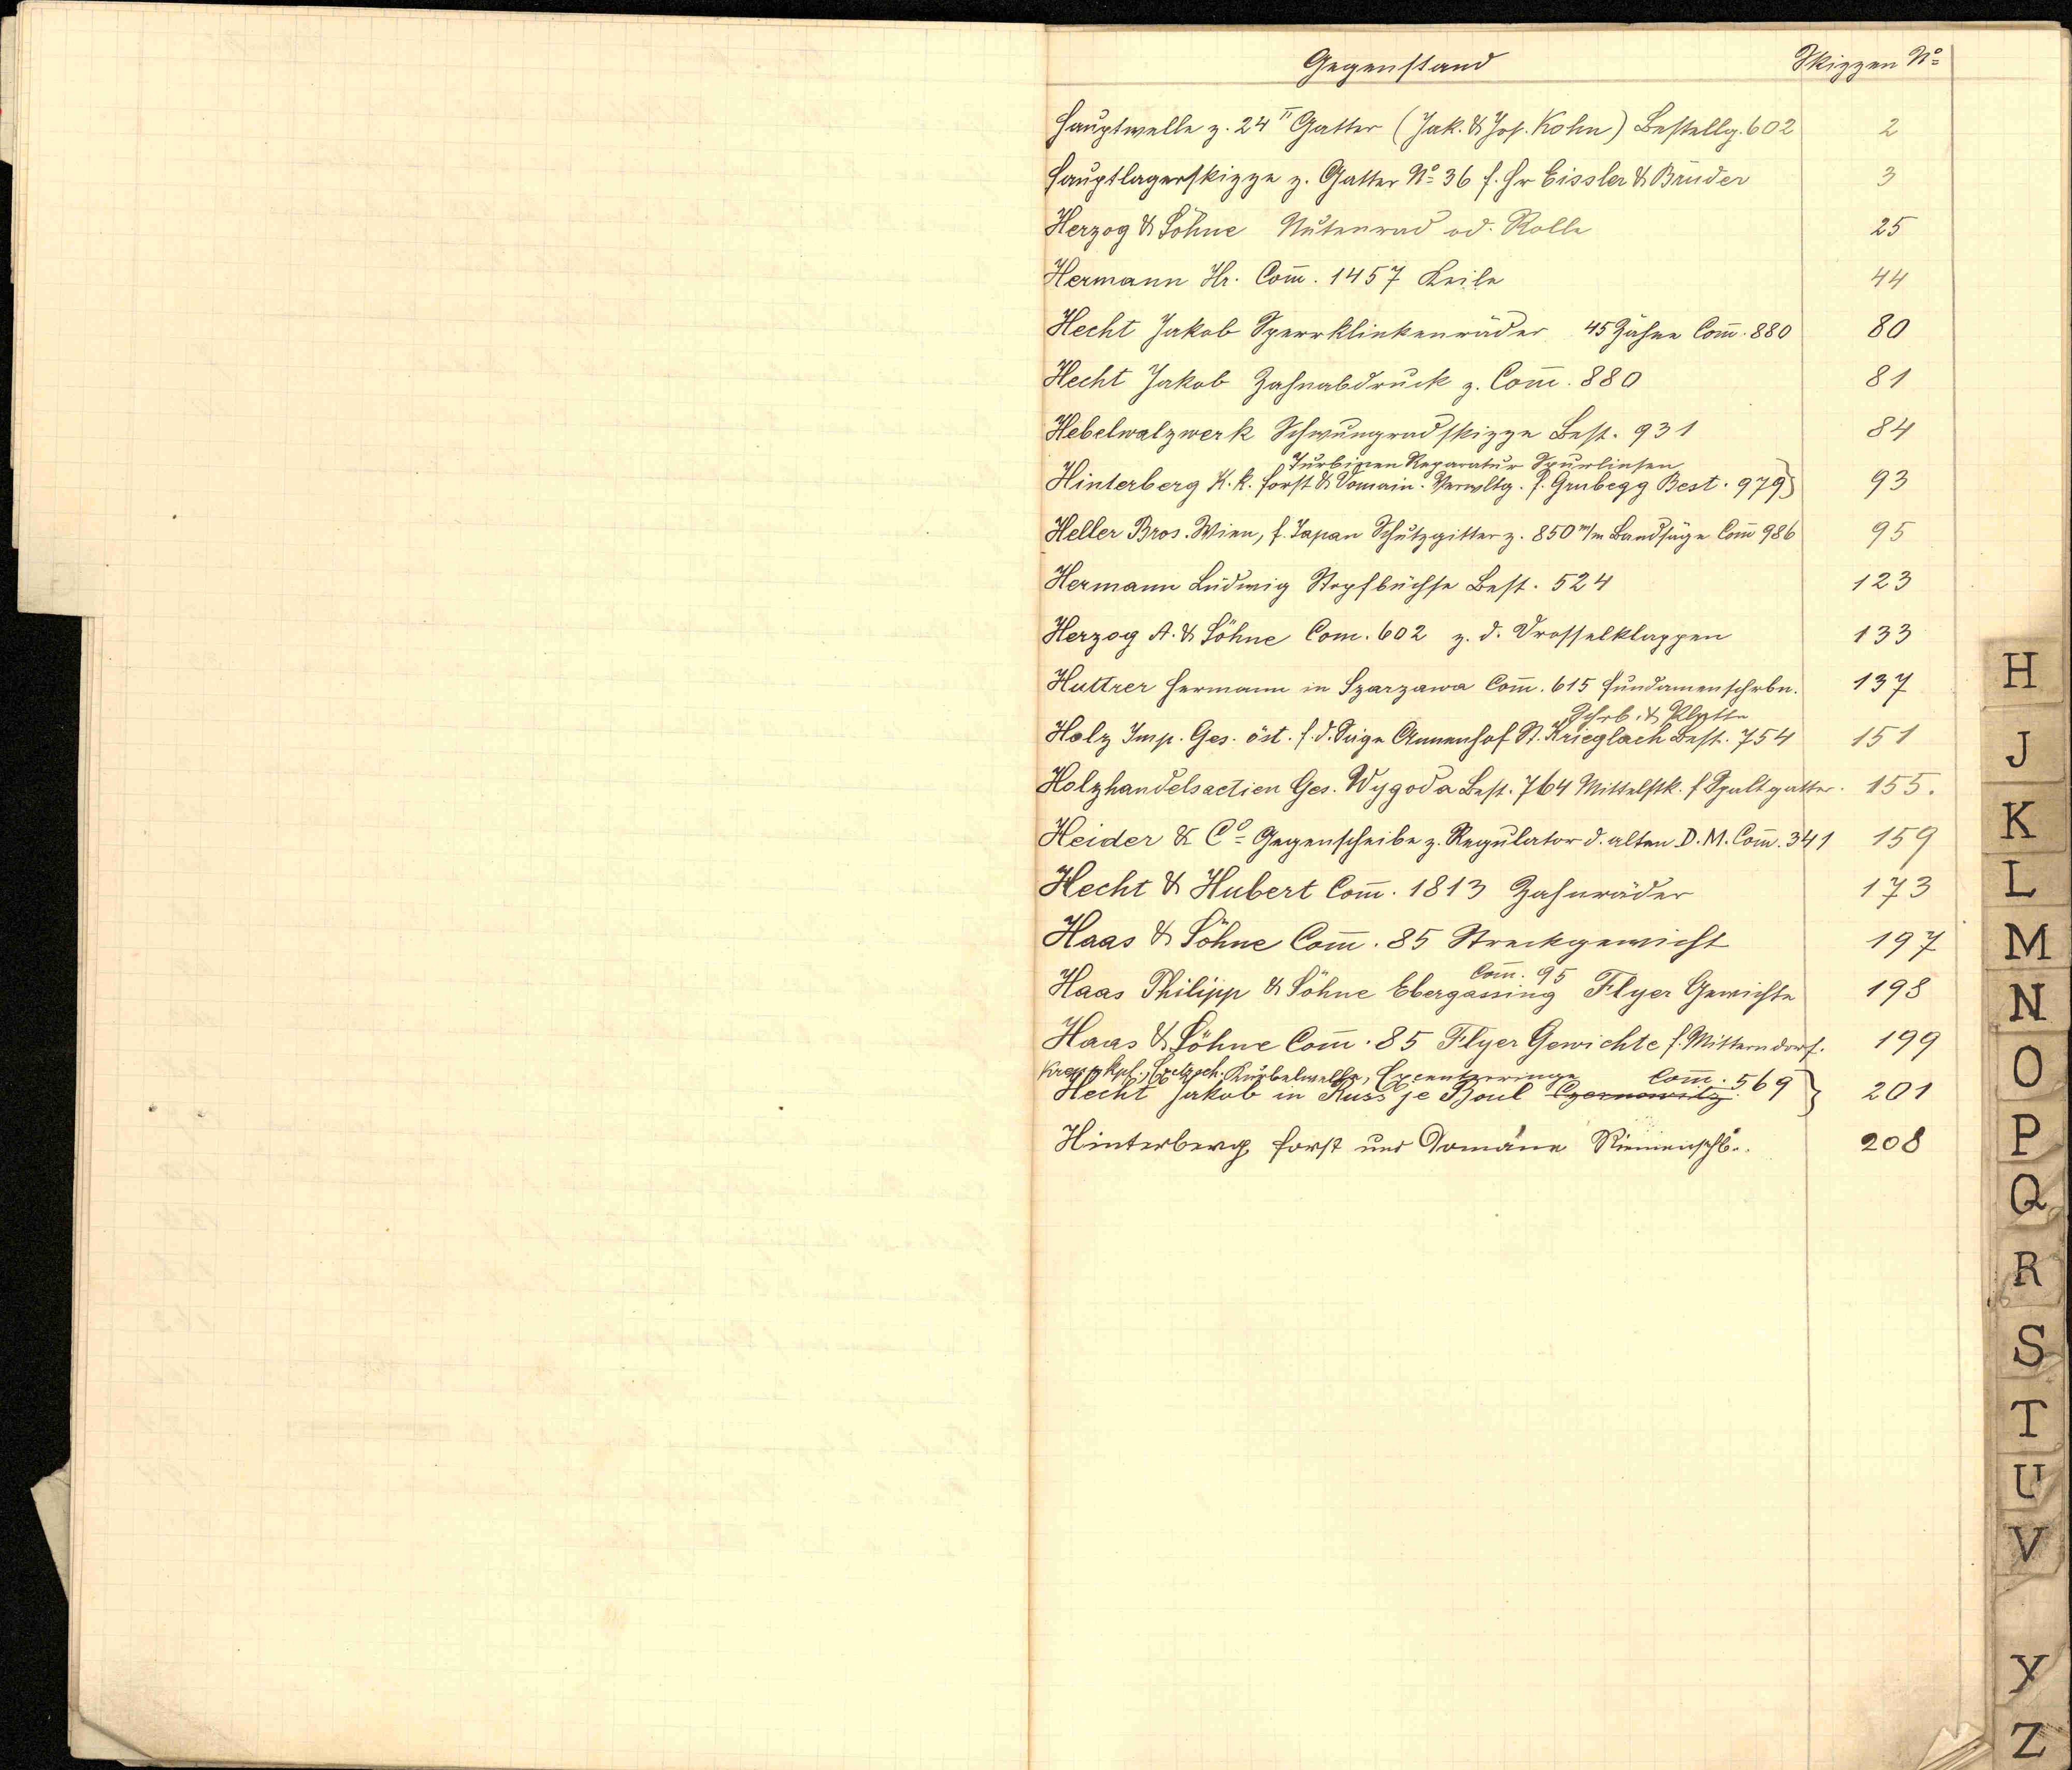 Gegenstand Skizzen No
Hauptwelle z. 24" Gatter (Jak. & Jos. Kohn) Bestellg. 602 2
Hauptlagerskizze z. Gatter No 36 f. Hr Eissler & Brüder 3
Herzog & Söhne Nutenrad od. Rolle 25
Hermann Hr. Com̅. 1457 Keile 44
Hecht Jakob Sperrklinkenräder 45 Zähne Com̅. 880 80
Hecht Jakob Zahnabdruck z. Com̅. 880 81
Hebelwalzwerk Schwungradskizze Best. 931 84
Turbinen Reparatur Spurlinsen
Hinterberg K.k. Forst & Domain. Verwltg. f. Grubegg Best. 979 93
Heller Bros. Wien, f. Japan Schutzgitter z. 850 m/m Bandsäge Com̅ 986 95
Hermann Ludwig Stopfbüchse Best. 524 123
Herzog A. & Söhne Com. 602 z. d. Drosselklappen 133
Huttrer Hermann in Szarzawa Com̅. 615 Fundamenschrbn. 137
Schrb. & Platte
Holz Imp. Ges. öst. f. d. Säge Annenhof St. Krieglach Best. 754 151
Holzhandelsactien Ges. Wygoda Best. 764 Mittelstk. f Spaltgatter. 155.
Heider & Co Gegenscheibe z. Regulator d. alten D. M. Com̅. 341 159
Hecht & Hubert Com̅. 1813 Zahnräder 173
Haas & Söhne Com̅. 85 Streckgewicht 197
Com̅. 95
Haas Philipp & Söhne Ebergassing Flyer Gewichte 198
Haas & Söhne Com̅. 85 Flyer Gewichte f. Mitterndorf. 199
Kurbelwelle, Excenterringe Com̅. 569
Hecht Jakob in Russ je Boul Czernowitz 201
Hinterberg Forst und Domäne Riemenschb. 208
H
J
K
L
M
N
O
P
Q
R
S
T
U
V
X
Z